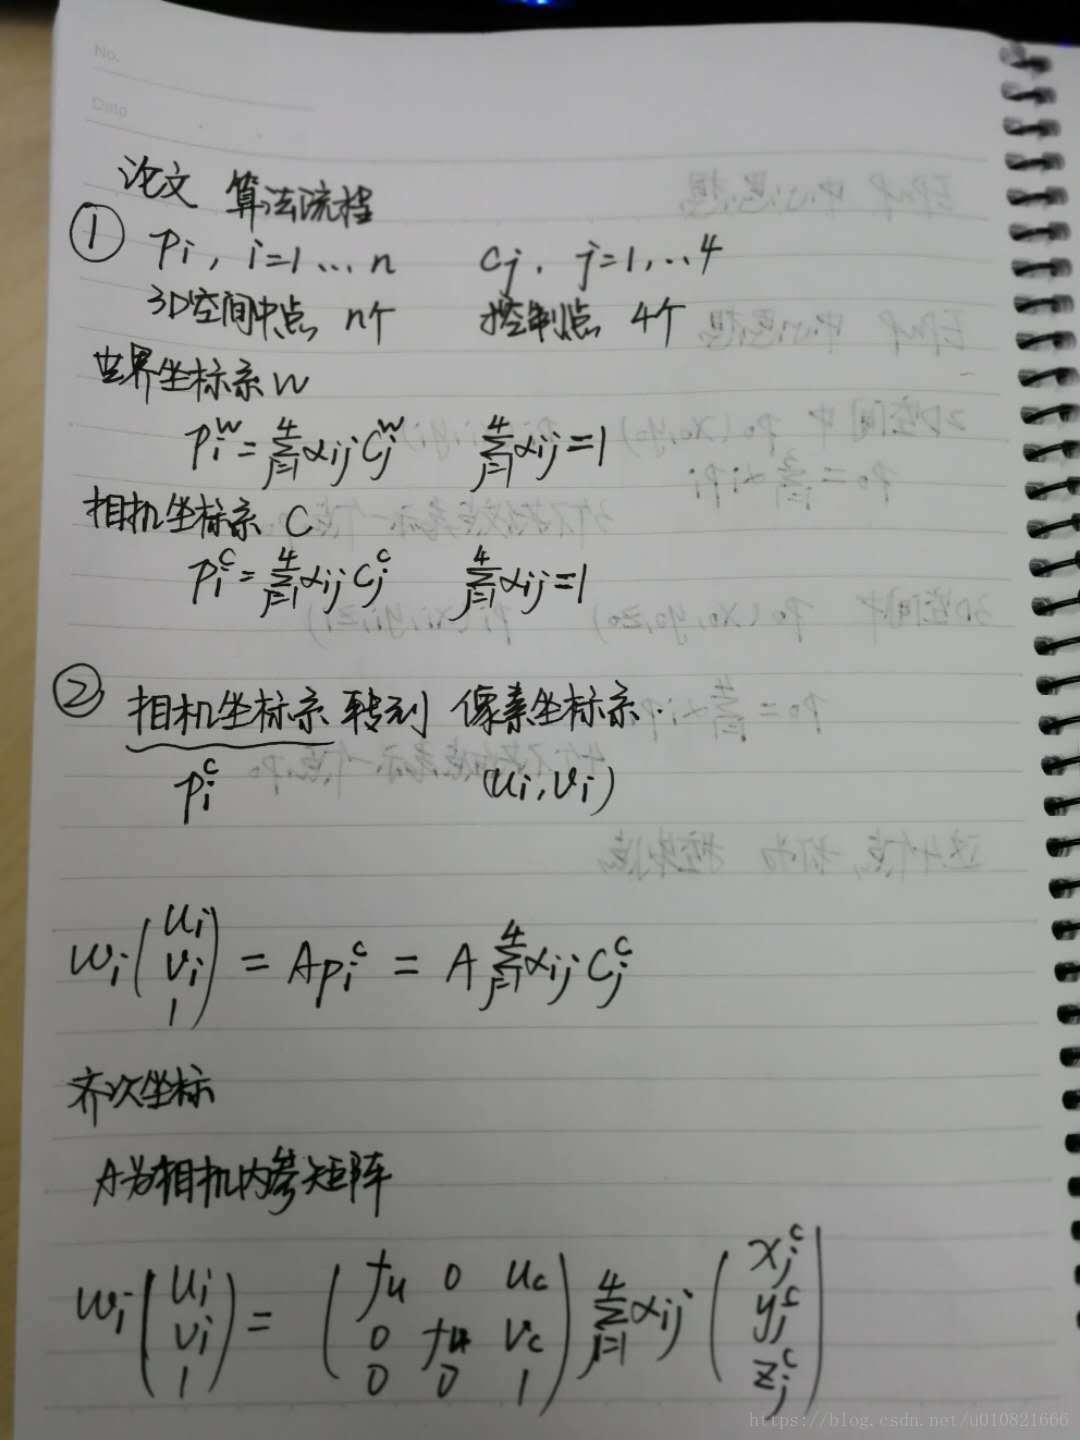 No.
Date
论文 算法流程
① pi, i=1...n cj, j=1,...4
3D空间中点 n个 控制点 4个
世界坐标系 W
p_i^w = Σ_{j=1}^4 αij C_j^w Σ_{j=1}^4 αij = 1
相机坐标系 C
p_i^c = Σ_{j=1}^4 αij C_j^c Σ_{j=1}^4 αij = 1
② 相机坐标系 转到 像素坐标系.
p_i^c (ui, vi)
wi (ui vi 1) = A p_i^c = A Σ_{j=1}^4 αij C_j^c
齐次坐标
A为相机内参矩阵
wi (ui vi 1) = (fu 0 uc 0 fu vc 0 0 1) Σ_{j=1}^4 αij (x_j^c y_j^c z_j^c)
https://blog.csdn.net/u010821666